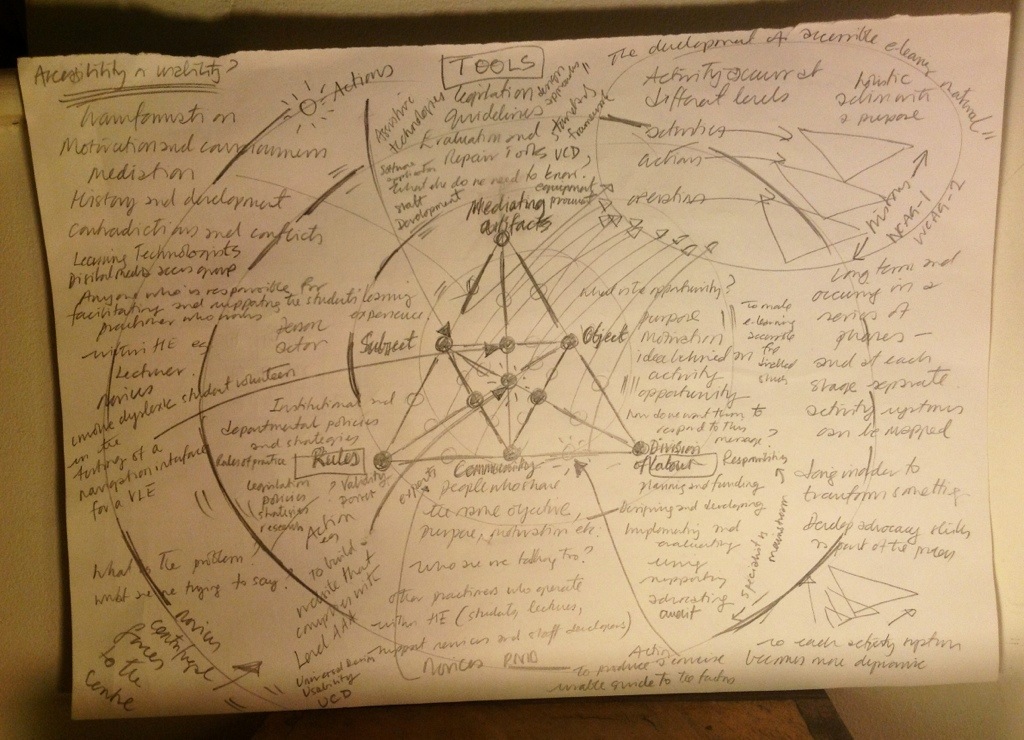 Accessibility or usability?
Transformation
Motivation and consciousness
mediation
History and development
contradictions and conflicts
Learning Technologists
Digital media access group
Anyone who is responsible for
facilitating and supporting the students learning
experience
practitioner who works
within HE eg
Lecturer
novices
dyslexic student volunteer
in the
testing of a
navigation interface
for a VLE
Person
actor
Actions
TOOLS
Assistive
technologies
legislation
guidelines
Evaluation and
Repair Tools UCD
design
approaches
standards
framework
Software
application
staff
Development
What else do we need to know?
equipment
Mediating
artifacts
Subject
Object
What is the opportunity?
purpose
motivation
idea behind an
activity
opportunity
how do we want them to
respond to this
message?
To make
e-learning
accessible
for
disabled
students
Institutional and
departmental policies
and strategies
Rules of practice
Rules
Community
Division
of labour
Responsibilities
Legislation
policies
strategies
research
Action
eg
To build a
website that
complies with
Level AAA
Universal Design
Usability
UCD
experts
people who share
the same objective,
purpose, motivation etc.
who are we talking too?
other practitioners who operate
within HE (students, lecturers,
support services and staff developers)
Novices
planning and funding
Designing and developing
Implementing and
evaluating
using
supporting
advocating
audit
specialists
mainstream
Action
To produce a concise
usable guide to the factors
What is the problem?
what are we trying to say?
Novices
centrifugal
forces
to the
centre
"The development of accessible e-learning material"
Activity occurs at
different levels
activities
actions
operations
holistic
activity with
a purpose
History
WCAG-1
WCAG-2
Long term and
occurring in a
series of
phases -
and at each
stage separate
activity systems
can be mapped
Long in order to
transform something
Develop advocacy slides
as part of the process
so each activity system
becomes more dynamic